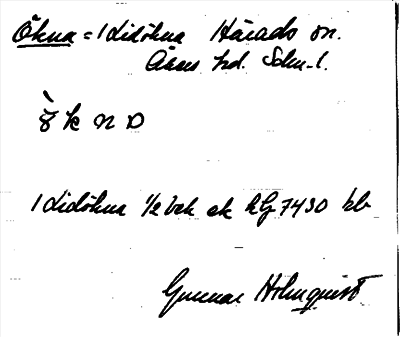 Ökna = Lidökna Härads sn.
Åkers hd. Sdm-l.
ö̀k n a
Lidökna 1/2 bek ek hg 7430 kb
Gunnar Holmquist